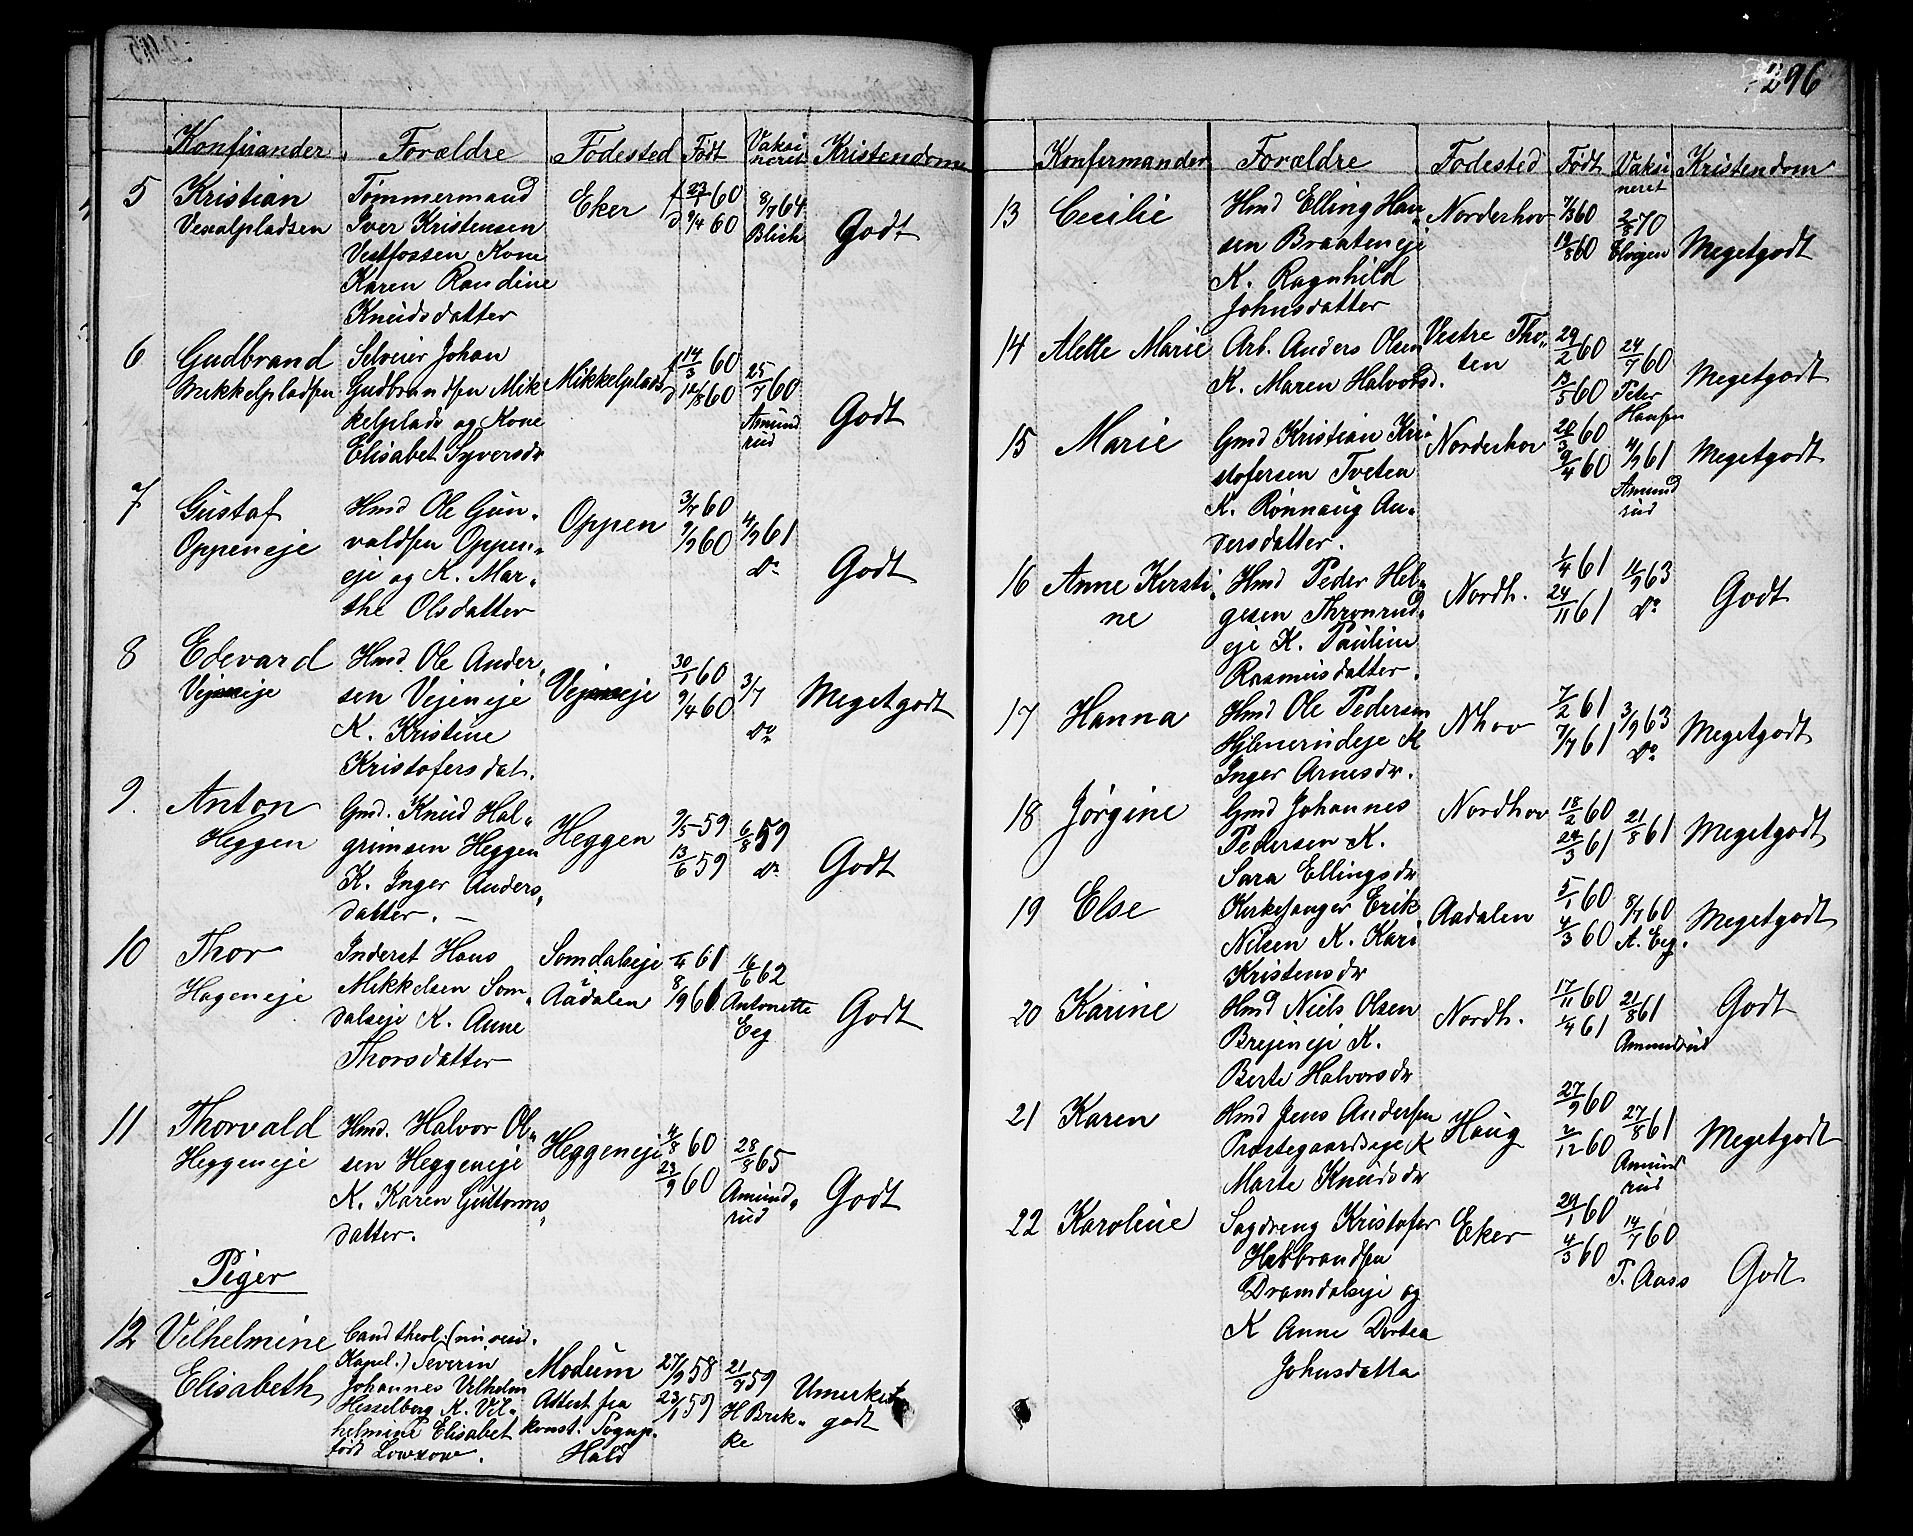 296
Konfirander Forældre Fødested Født Vaksineret Kristendom
5 Kristian Vexalpladsen
Tømmermand
Iver Kristensen
Vestfossen Kone
Karen Randine
Knudsdatter
Eker
f 23/1 60
d 9/4 60
8/7 64
Blich
Godt
6 Gudbrand
Mikkelpladsen
Selveier Johan
Gudbrandsen Mik
kelplads og Kone
Elisabet Syversdr
Mikkelplads
f 14/3 60
d 12/8 60
25/7 60
Amund
rud
Godt
7 Gustaf
Oppeneje
Hmd Ole Gun-
valdsen Oppen-
eje og K. Mar-
the Olsdatter
Oppen
3/7 60
9/9 60
4/9 61
Do
Godt
8 Edevard
Vejeneje
Hmd. Ole Ander-
sen Vejeneje
K. Kristine
Kristofersdat.
Vejeneje
30/1 60
9/4 60
3/7
Do
Megetgodt
9. Anton
Heggen
Gmd. Knud Hal-
grimsen Heggen
K. Inger Anders-
datter. –
Heggen
9/5 – 59
13/6 59
6/8 59
Do
Godt
10 Thor
Hageneje
Inderst Hans
Mikkelsen Som-
dalseje K. Anne
Thorsdatter
Somdalseje
i Aadalen
1/4 61
8/9 61
16/6 62
Antonette
Eeg
Godt
11 Thorvald
Heggeneje
Hmd. Halvor Ol-
sen Heggeneje
K. Karen Guttorms-
datter.
Heggeneje
4/8 60
23/9 60
28/8 65
Amund-
rud
Godt
Piger
12 Vilhelmine
Elisabeth
Cand theol. (nu resid.
Kapel.) Severin
Johannes Vilhelm
Hesselberg K. Vil-
helmine Elisabet
født Lowzow.
Modum
Attest fra
konst. Sognp.
Hald
27/9 58
23/1 59
21/7 59
H Brek-
ke
Umerket
godt
Konfermander Forældre Fødested Født Vaksineret Kristendom
13 Cecilie
Hmd Elling Han-
sen Braateneje
K. Ragnhild
Johnsdatter
Norderhov
7/3 60
19/8 60
2/8 70
Elvigen
Megetgodt
14 Alette Marie
Arb. Anders Olsen
K. Maren Halvorsd.
Vestre Tho-
sen
29/2 60
13/5 60
24/7 60
Peter
Hansen
Megetgodt
15 Marie
Gmd Kristian Kri-
stofersen Tveten
K. Rønnaug An-
dersdatter.
Norderhov
20/3 60
9/4 60
4/9 61
Amund
rud
Megetgodt
16 Anne Kersti-
ne
Hmd Peder Hel-
gesen Thronrud-
eje K. Pauline
Rasmusdatter.
Nordh.
1/4 61
24/11 61
11/9 63
Do
Godt
17 Hanna
Hmd Ole Pedersen
Hjlmerudeje K
Inger Arnesdr.
Nhov
7/2 61
7/7 61
3/9 63
Do
Megetgodt
18 Jørgine
Gmd Johannes
Pedersen K.
Sara Ellingsdr
Nordhov
18/2 60
24/3 61
21/8 61
Megetgodt
19 Else
Kirkesanger Erik
Nilsen K. Kari
Kristensdr
Aadalen
5/1 60
4/3 60
8/7 60
A. Eeg.
Megetgodt
20 Karine
Hmd Niels Olsen
Brejeneje K.
Berte Halvorsdr
Nordh.
17/11 60
1/4 61
21/8 61
Amundrud
Godt
21 Karen
Hmd Jens Andersen
Præstegaardseje K
Marte Knudsdr
Haug
27/9 60
2/12 60
27/8 61
Amund
rud
Megetgodt
22 Karoline
Sagdreng Kristofer
Hebbrandsen
Dramdalseje og
K Anne Dortea
Johnsdatta
Eker
29/1 60
4/3 60
14/7 60
P. Aass
Godt